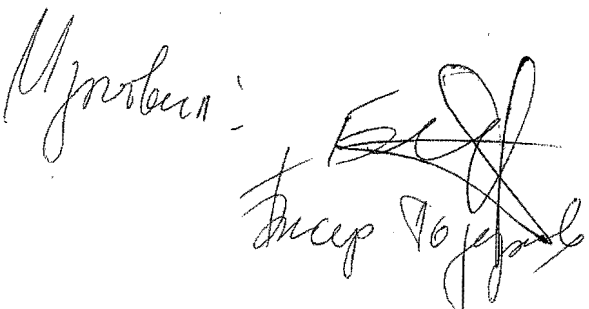 Изготвил:
Бисер Тодоров